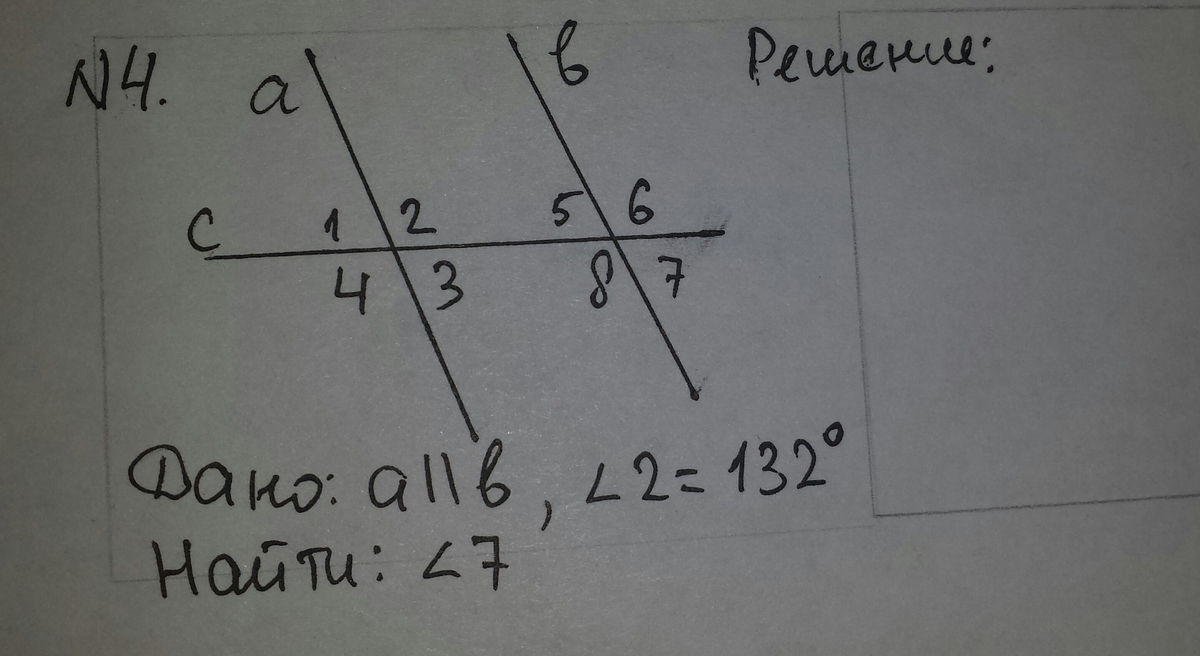 N4.
a
в
Решение:
c
1 2
5 6
4 3
8 7
Дано: a||в, ∠2=132°
Найти: ∠7